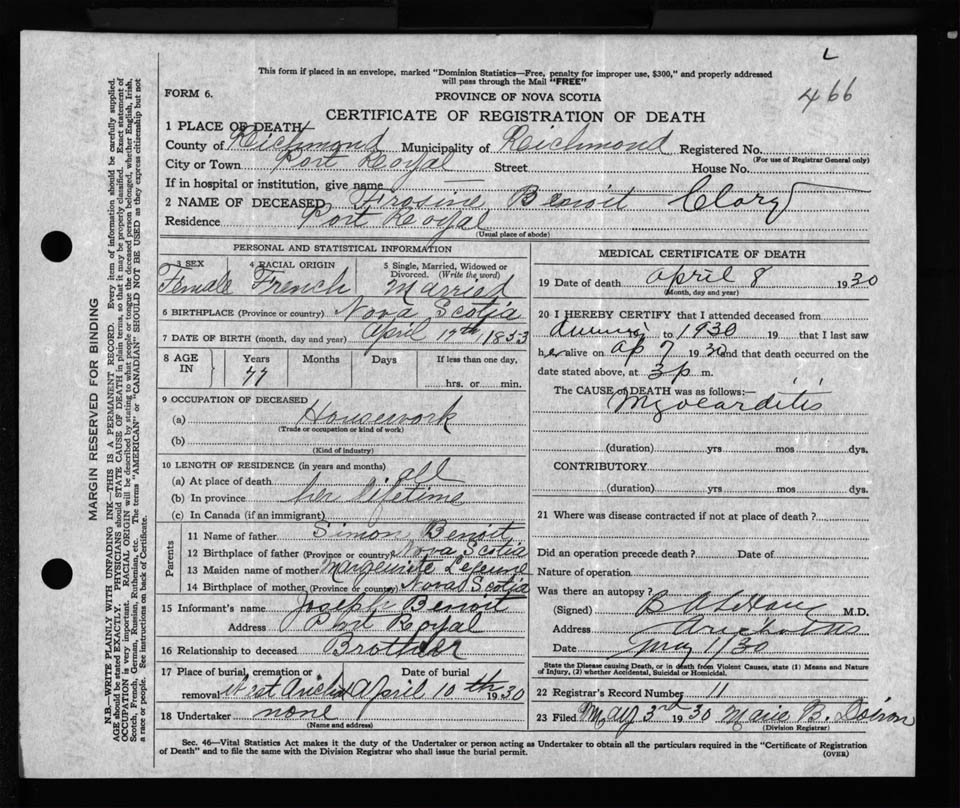 L
466
This form if placed in an envelope, marked "Dominion Statistics—Free, penalty for improper use, $300," and properly addressed
will pass through the Mail "FREE"
FORM 6.
PROVINCE OF NOVA SCOTIA
CERTIFICATE OF REGISTRATION OF DEATH
1 PLACE OF DEATH
County of Richmond Municipality of Richmond Registered No.
(For use of Registrar General only)
City or Town Port Royal Street House No.
If in hospital or institution, give name —
2 NAME OF DECEASED Benoit Clory
Residence Port Royal
(Usual place of abode)
PERSONAL AND STATISTICAL INFORMATION
3 SEX
Female
4 RACIAL ORIGIN
French
5 Single, Married, Widowed or
Divorced. (Write the word)
Married
6 BIRTHPLACE (Province or country) Nova Scotia
7 DATE OF BIRTH (month, day and year) April 17th, 1853
8 AGE IN
Years Months Days If less than one day,
77 hrs. or min.
9 OCCUPATION OF DECEASED
(a) Housework
(Trade or occupation or kind of work)
(b)
(Kind of industry)
10 LENGTH OF RESIDENCE (in years and months)
(a) At place of death all
(b) In province her lifetime
(c) In Canada (if an immigrant)
Parents
11 Name of father Simon Benoit
12 Birthplace of father (Province or country) Nova Scotia
13 Maiden name of mother Marguerite Lejeune
14 Birthplace of mother (Province or country) Nova Scotia
15 Informant's name Joseph Benoit
Address Port Royal
16 Relationship to deceased Brother
17 Place of burial, cremation or Date of burial
removal West Arichat April 10th 1930
18 Undertaker none
(Name and address)
MEDICAL CERTIFICATE OF DEATH
19 Date of death April 8 1930
(Month, day and year)
20 I HEREBY CERTIFY that I attended deceased from
to 1930 19 that I last saw
her alive on Ap 7 1930 and that death occurred on the
date stated above, at 3 p m.
The CAUSE of DEATH was as follows:—
Myocarditis
(duration) yrs mos dys.
CONTRIBUTORY
(duration) yrs mos dys.
21 Where was disease contracted if not at place of death?
Did an operation precede death? Date of
Nature of operation
Was there an autopsy?
(Signed) M.D.
Address Arichat NS
Date May 1/30
State the Disease causing Death, or in death from Violent Causes, state (1) Means and Nature
of Injury, (2) whether Accidental, Suicidal or Homicidal.
22 Registrar's Record Number 11
23 Filed May 3rd 1930 B. Doiron
(Division Registrar)
Sec. 46—Vital Statistics Act makes it the duty of the Undertaker or person acting as Undertaker to obtain all the particulars required in the "Certificate of Registration
of Death" and to file the same with the Division Registrar who shall issue the burial permit. (OVER)
MARGIN RESERVED FOR BINDING
N.B.—WRITE PLAINLY WITH UNFADING INK—THIS IS A PERMANENT RECORD. Every item of information should be carefully supplied.
AGE should be stated EXACTLY. PHYSICIANS should STATE CAUSE OF DEATH in plain terms, so that it may be properly classified. Exact statement of
OCCUPATION is very important. RACIAL ORIGIN will be described by stating to what people or tongue the deceased person belonged, whether English, Irish,
Scotch, French, German, Russian, Ruthenian, etc. The terms "AMERICAN" or "CANADIAN" SHOULD NOT BE USED as they express citizenship but not
a race or people. See instructions on back of Certificate.